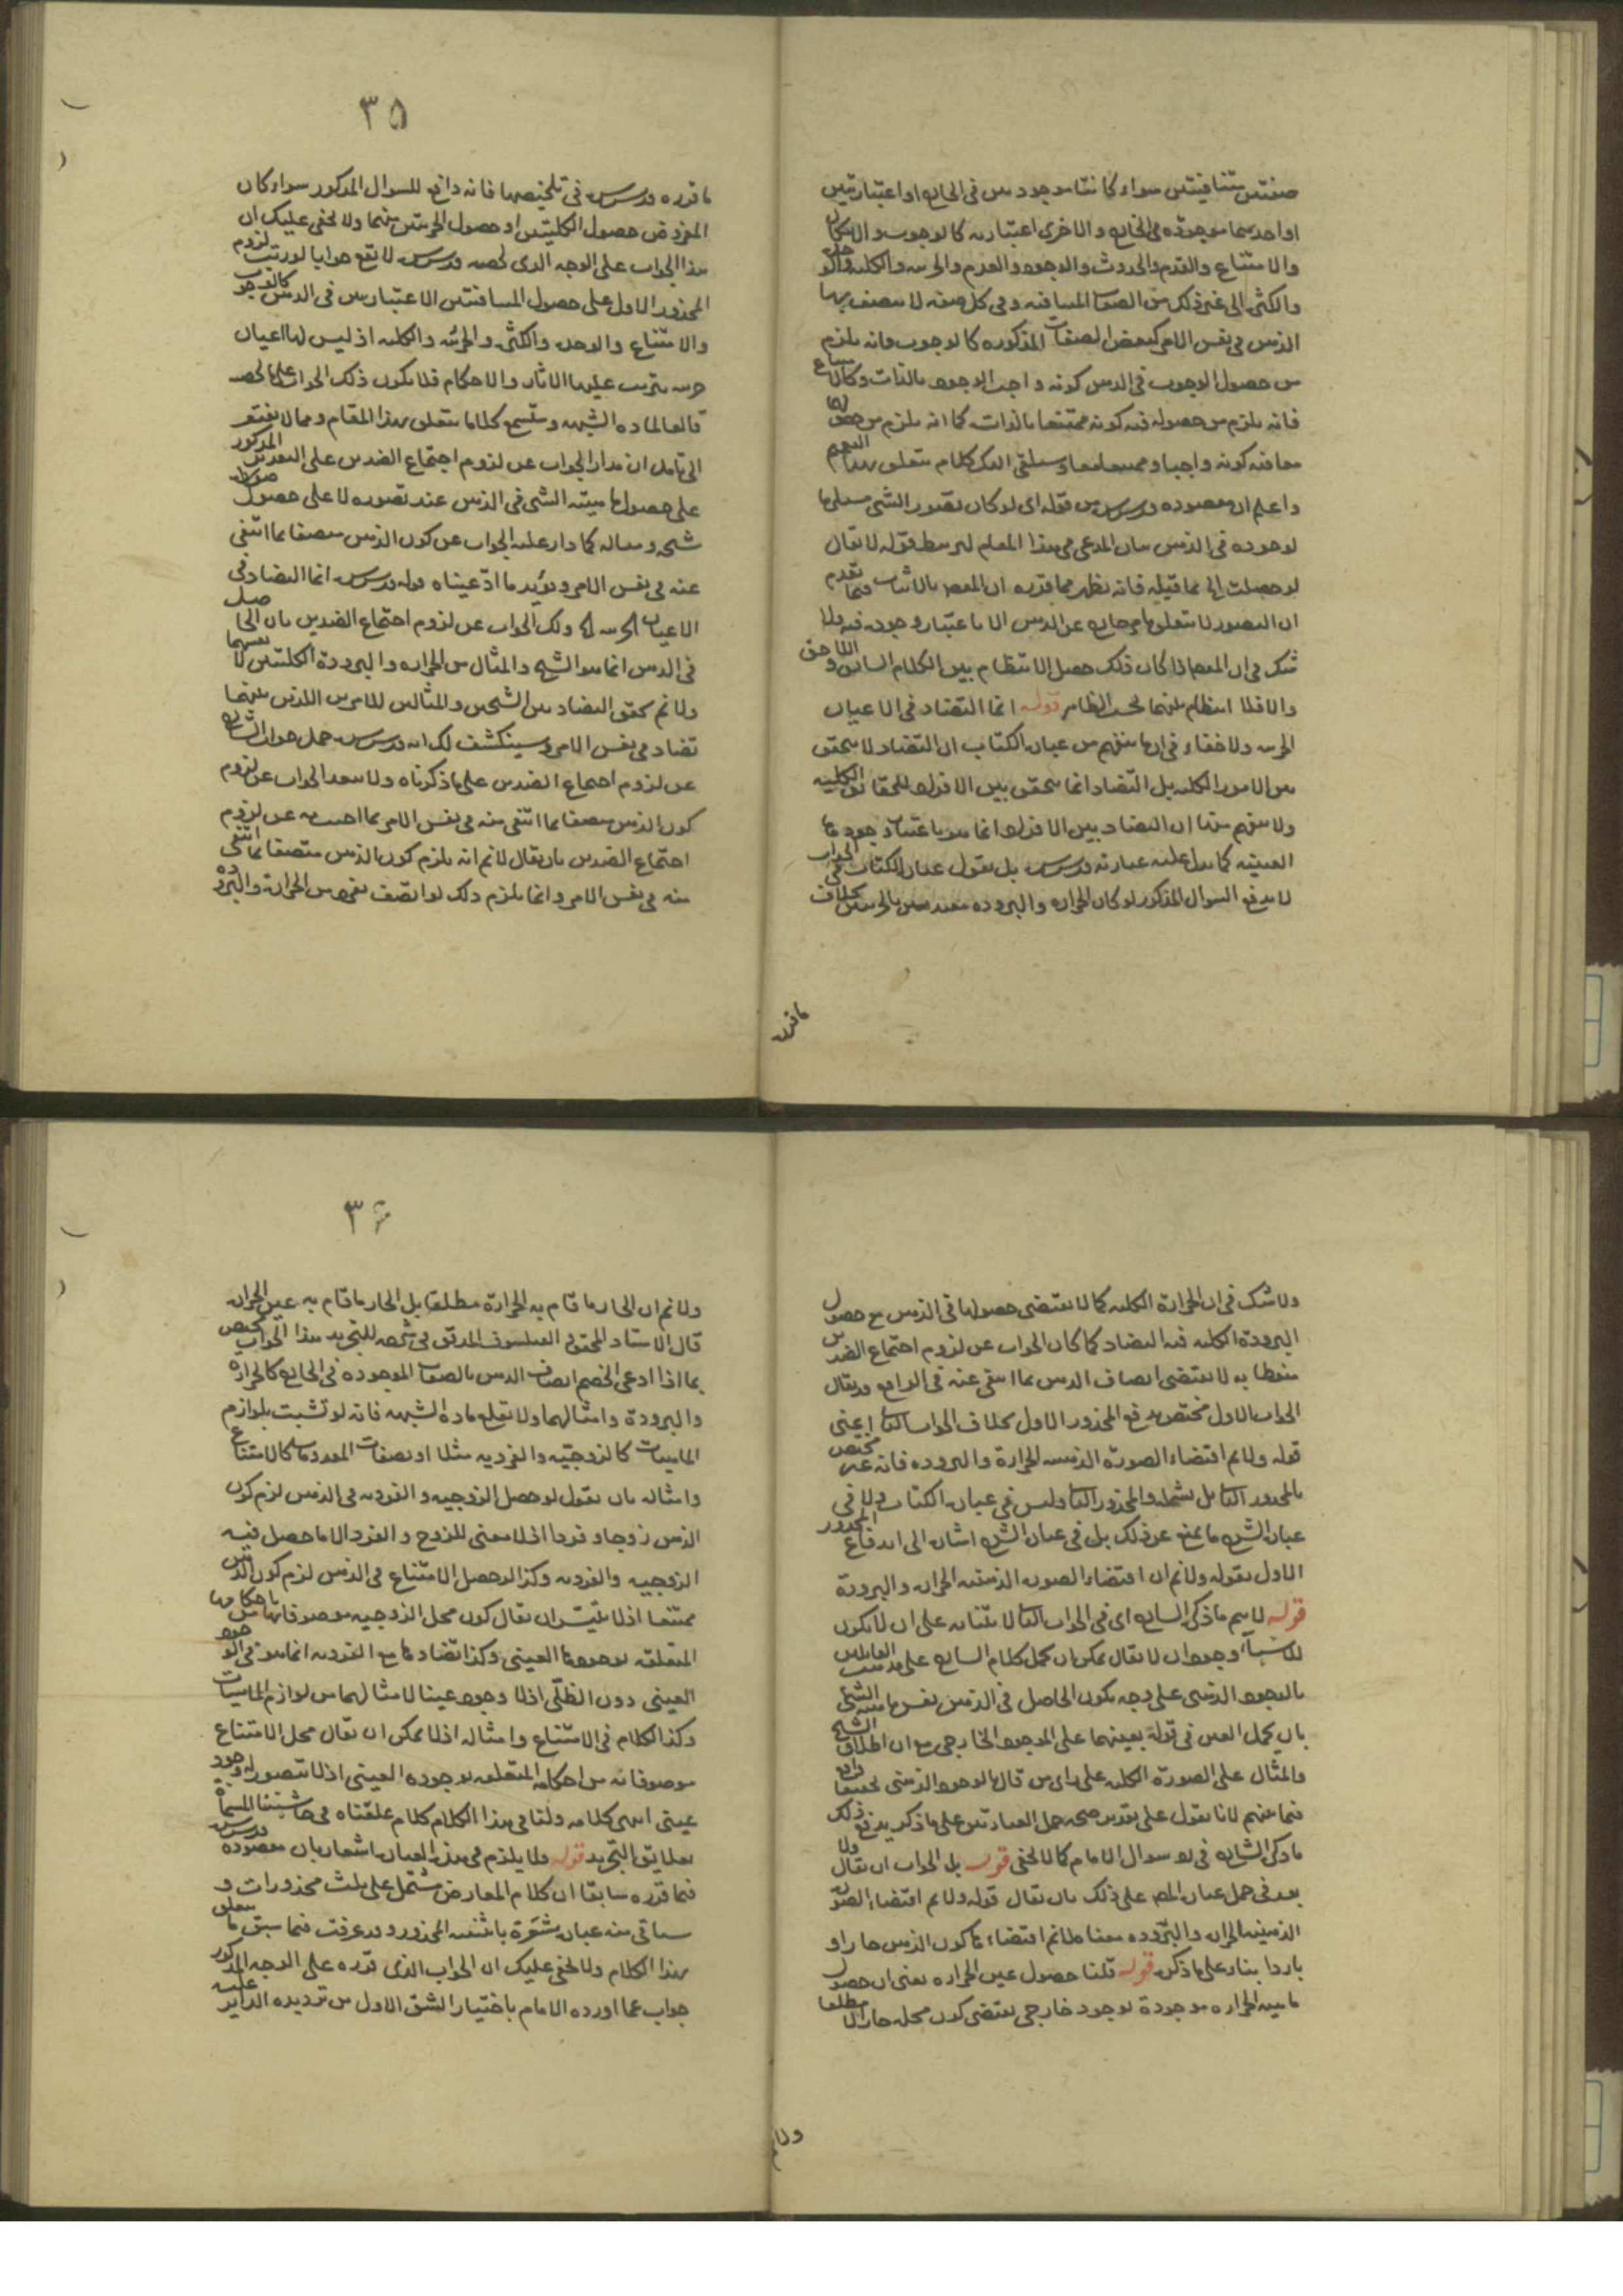 صفتين متنافيتين سواء كانتا موجودتين في الخارج او اعتباريتين
او احديهما موجودة في الخارج والاخرى اعتبارية كالوجوب والامكان
والامتناع والقدم والحدوث والوجود والعدم والجزئية والكلية والوحدة
والكثرة الى غير ذلك من الصفات المتنافية وفي كل صفة لا يتصف بها
الذهن في نفس الامر كبعض الصفات المذكورة كالوجوب فانه يلزم
من حصول الوجوب في الذهن كونه واجب الوجود بالذات وكالامتناع
فانه يلزم من حصوله فيه كونه ممتنعا بالذات كما انه يلزم من حصولهما
معا فيه كونه واجبا وممتنعا معا وسيلقى اليك كلام متعلق بهذا
واعلم ان مقصوده قدس سره من قوله اى لو كان تصور الشى مستلزما
لوجوده في الذهن بيان المدعى في هذا المقام ليرتبط قوله لا يقال
لو حصلت الى بما قبله فانه يظهر مما قرره ان المعـ بالاثبات فيما تقدم
ان التصور لا يتعلق بامر خارج عن الذهن الا باعتبار وجوده فيه ولا
شك في ان المعـ اذا كان ذلك حصل الانتظام بين الكلام السابق واللاحق
والا فلا انتظام بينهما بحسب الظاهر قوله انما التضاد في الاعيان
الخ ولا خفاء في ان ما يفهم من عبارة الكتاب ان التضاد لا يتحقق
بين الامور الكلية بل التضاد انما يتحقق بين الافراد للحقائق الكلية
ولا يفهم منها ان التضاد بين الافراد انما هو باعتبار وجودها
العينية كما يدل عليه عبارته قدس سره بل نقول عبارة الكتاب في الجواب
لا يدفع السوال المذكور لو كان الحرارة والبرودة مقيدتين بالجزئيتين بخلاف
ما قرره
٣٥
ما قرره قدس سره في تلخيصها فانه دافع للسوال المذكور سواء كان
المفروض حصول الكليتين او حصول الجزئيتين منهما ولا يخفى عليك ان
هذا الجواب على الوجه الذى لخصه قدس سره لا يقع جوابا لو رتب لزوم
المحذور الاول على حصول المتنافيتين الاعتباريتين في الذهن كالوجوب
والامتناع والوحدة والكثرة والجزئية والكلية اذ ليس لها اعيان
خارجية يترتب عليها الاثار والاحكام فلا يكون ذلك الجواب على ما لخصه
قالعا لمادة الشبهة وستسمع كلاما متعلق بهذا المقام ومما لا يفتقر
الى تامل ان مدار الجواب عن لزوم اجتماع الضدين على التقدير المذكور
على حصول ماهية الشى في الذهن عند تصوره لا على حصول صورته
شبحه ومثاله كما دار عليه الجواب عن كون الذهن متصفا بما انتفى
عنه في نفس الامر ويؤيد ما ادعيناه قوله قدس سره انما التضاد في
الاعيان الخ ولك الجواب عن لزوم اجتماع الضدين بان الحاصل
في الذهن انما هو الشبح والمثال من الحرارة والبرودة الكليتين لا نفسهما
ولا نم تحقق التضاد بين الشبحين والمثالين للامرين اللذين بينهما
تضاد في نفس الامر وسينكشف لك انه قدس سره حمل جواب الشارح
عن لزوم اجتماع الضدين على ما ذكرناه ولا يبعد الجواب عن لزوم
كون الذهن متصفا بما انتفى عنه في نفس الامر بما اجيب به عن لزوم
اجتماع الضدين بان يقال لا نم انه يلزم كون الذهن متصفا بما انتفى
عنه في نفس الامر وانما يلزم ذلك لو اتصف بفرد من الحرارة والبرودة
ولا شك في ان الحرارة الكلية كما لا يقتضى حصولها في الذهن مع حصول
البرودة الكلية فيه التضاد كما كان الجواب عن لزوم اجتماع الضدين
منوطا به لا يقتضى اتصاف الذهن بما انتفى عنه في الواقع وقد يقال
الجواب الاول مختص بدفع المحذور الاول بخلاف الجواب الثاني اعنى
قوله ولا نم اقتضاء الصورة الذهنية الحرارة والبرودة فانه غير مختص
بالمحذور الثاني بل يشمله والمحذور الثاني وليس في عبارة الكتاب ولا في
عبارة الشرح ما يمنع عن ذلك بل في عبارة الشرح اشارة الى اندفاع المحذور
الاول بقوله ولا نم ان اقتضاء الصورة الذهنية الحرارة والبرودة
قوله لا يتم ما ذكره الشارح اى في الجواب الثاني لابتنائه على ان لا يكون
للاشياء وجود ان لا يقال يمكن ان يحمل كلام الشارح على مذهب القائلين
بالوجود الذهنى على وجه يكون الحاصل في الذهن نفس ماهية الشئ
بان يحمل العين في قوله بعينهما على الموجود الخارجى مع ان اطلاق الشبح
والمثال على الصورة الكلية على راى من قال بالوجود الذهنى تحقيقا واقع
فيما بينهم لانا نقول على تقدير صحة حمل العبارتين على ما ذكر يدفع ذلك
ما ذكره الشارح في رد سوال الامام كما لا يخفى قوله بل الجواب ان يقال ولا
بعد في حمل عبارة المص على ذلك بان يقال قوله ولا نم اقتضاء الصورة
الذهنية الحرارة والبرودة معناه لا نم اقتضاءها كون الذهن حارا و
باردا بناء على ما ذكره قوله قلنا حصول عين الحرارة يعنى ان حصول
ماهية الحرارة موجودة بوجود خارجى يقتضى كون محله حارا لا مطلقا
ولا نم
٣۶
ولا نم ان الحار ما قام به الحرارة مطلقا بل الحار ما قام به عين الحرارة
قال الاستاد المحقق الفيلسوف المدقق في شرحه للتجريد هذا الجواب يختص
بما اذا ادعى الخصم اتصاف الذهن بالصفات الموجودة في الخارج كالحرارة
والبرودة وامثالهما ولا يقلع مادة الشبهة فانه لو تشبث بلوازم
الماهيات كالزوجية والفردية مثلا او بصفات المعدومات كالامتناع
وامثاله بان يقول لو حصل الزوجية والفردية في الذهن لزم كون
الذهن زوجا وفردا اذ لا معنى للزوج والفرد الا ما حصل فيه
الزوجية والفردية وكذا لو حصل الامتناع في الذهن لزم كون الذهن
ممتنعا اذ لا يتيسر ان يقال كون محل الزوجية موصوفا بها من احكامها
المتعلقة بوجودها العينى وكذا تضادها مع الفردية انما هو في الوجود
العينى دون الظلى اذ لا وجود عينيا لامثالهما من لوازم الماهيات
وكذا الكلام في الامتناع وامثاله اذ لا يمكن ان يقال محل الامتناع
موصوفا به من احكامه المتعلقة بوجوده العينى اذ لا يتصور له وجود
عينى انتهى كلامه ولنا في هذا الكلام كلام علقناه في حاشيتنا المسماة
بعلايق التجريد قوله ولا يلزم في هذه العبارة اشعار بان مقصوده قدس سره
فيما قرره سابقا ان كلام المعارض مشتمل على ثلث محذورات و
سياتى منه عبارة مشعرة باثنينية المحذور وقد عرفت فيما سبق ما يتعلق
بهذا الكلام ولا يخفى عليك ان الجواب الذى قرره على الوجه المذكور
جواب عما اورده الامام باختيار الشق الاول من ترديده الداير عليه